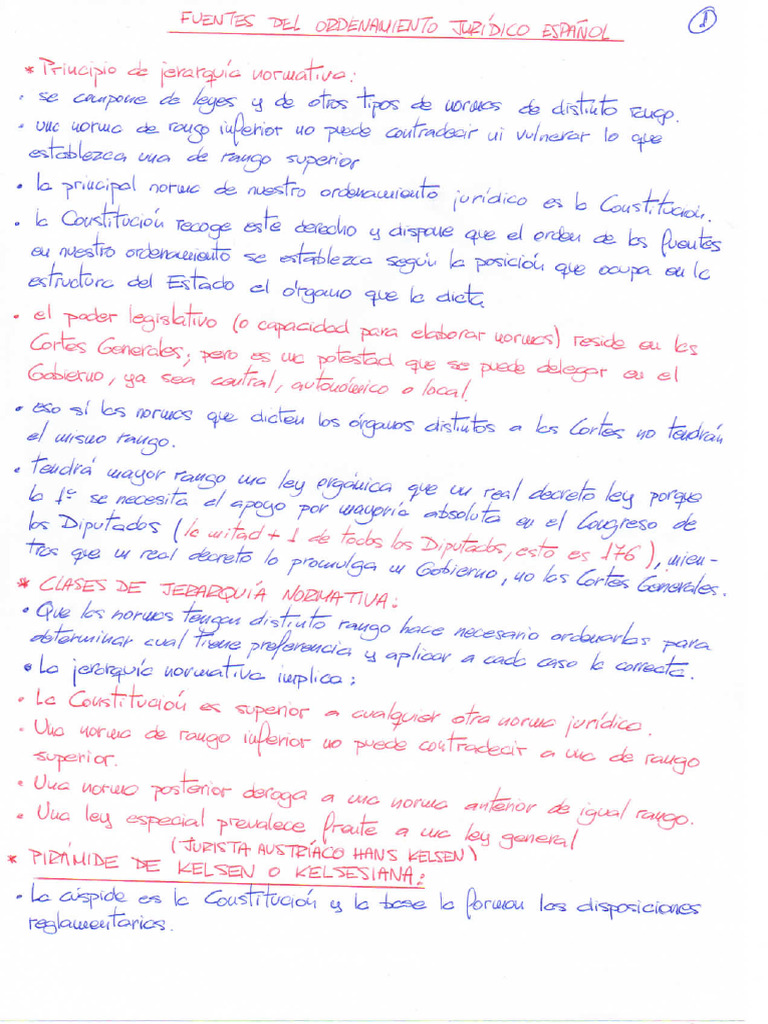 FUENTES DEL ORDENAMIENTO JURÍDICO ESPAÑOL
1
* Principio de jerarquía normativa:
· se compone de leyes y de otros tipos de normas de distinto rango.
· una norma de rango inferior no puede contradecir ni vulnerar lo que
establezca una de rango superior
· la principal norma de nuestro ordenamiento jurídico es la Constitución.
· la Constitución recoge este derecho y dispone que el orden de las fuentes
en nuestro ordenamiento se establezca según la posición que ocupa en la
estructura del Estado el órgano que la dicta.
· el poder legislativo (o capacidad para elaborar normas) reside en las
Cortes Generales; pero es una potestad que se puede delegar en el
Gobierno, ya sea central, autonómico o local.
· eso sí las normas que dicten los órganos distintos a las Cortes no tendrán
el mismo rango.
· tendrá mayor rango una ley orgánica que un real decreto ley porque
la 1ª se necesita el apoyo por mayoría absoluta en el Congreso de
los Diputados (la mitad + 1 de todos los Diputados, esto es 176), mien-
tras que un real decreto lo promulga un Gobierno, no las Cortes Generales.
* CLASES DE JERARQUÍA NORMATIVA:
· Que las normas tengan distinto rango hace necesario ordenarlas para
determinar cual tiene preferencia y aplicar a cada caso la correcta.
· La jerarquía normativa implica:
· La Constitución es superior a cualquier otra norma jurídica.
· Una norma de rango inferior no puede contradecir a una de rango
superior.
· Una norma posterior deroga a una norma anterior de igual rango.
· Una ley especial prevalece frente a una ley general
(JURISTA AUSTRÍACO HANS KELSEN)
* PIRÁMIDE DE KELSEN O KELSESIANA:
· La cúspide es la Constitución y la base la forman las disposiciones
reglamentarias.